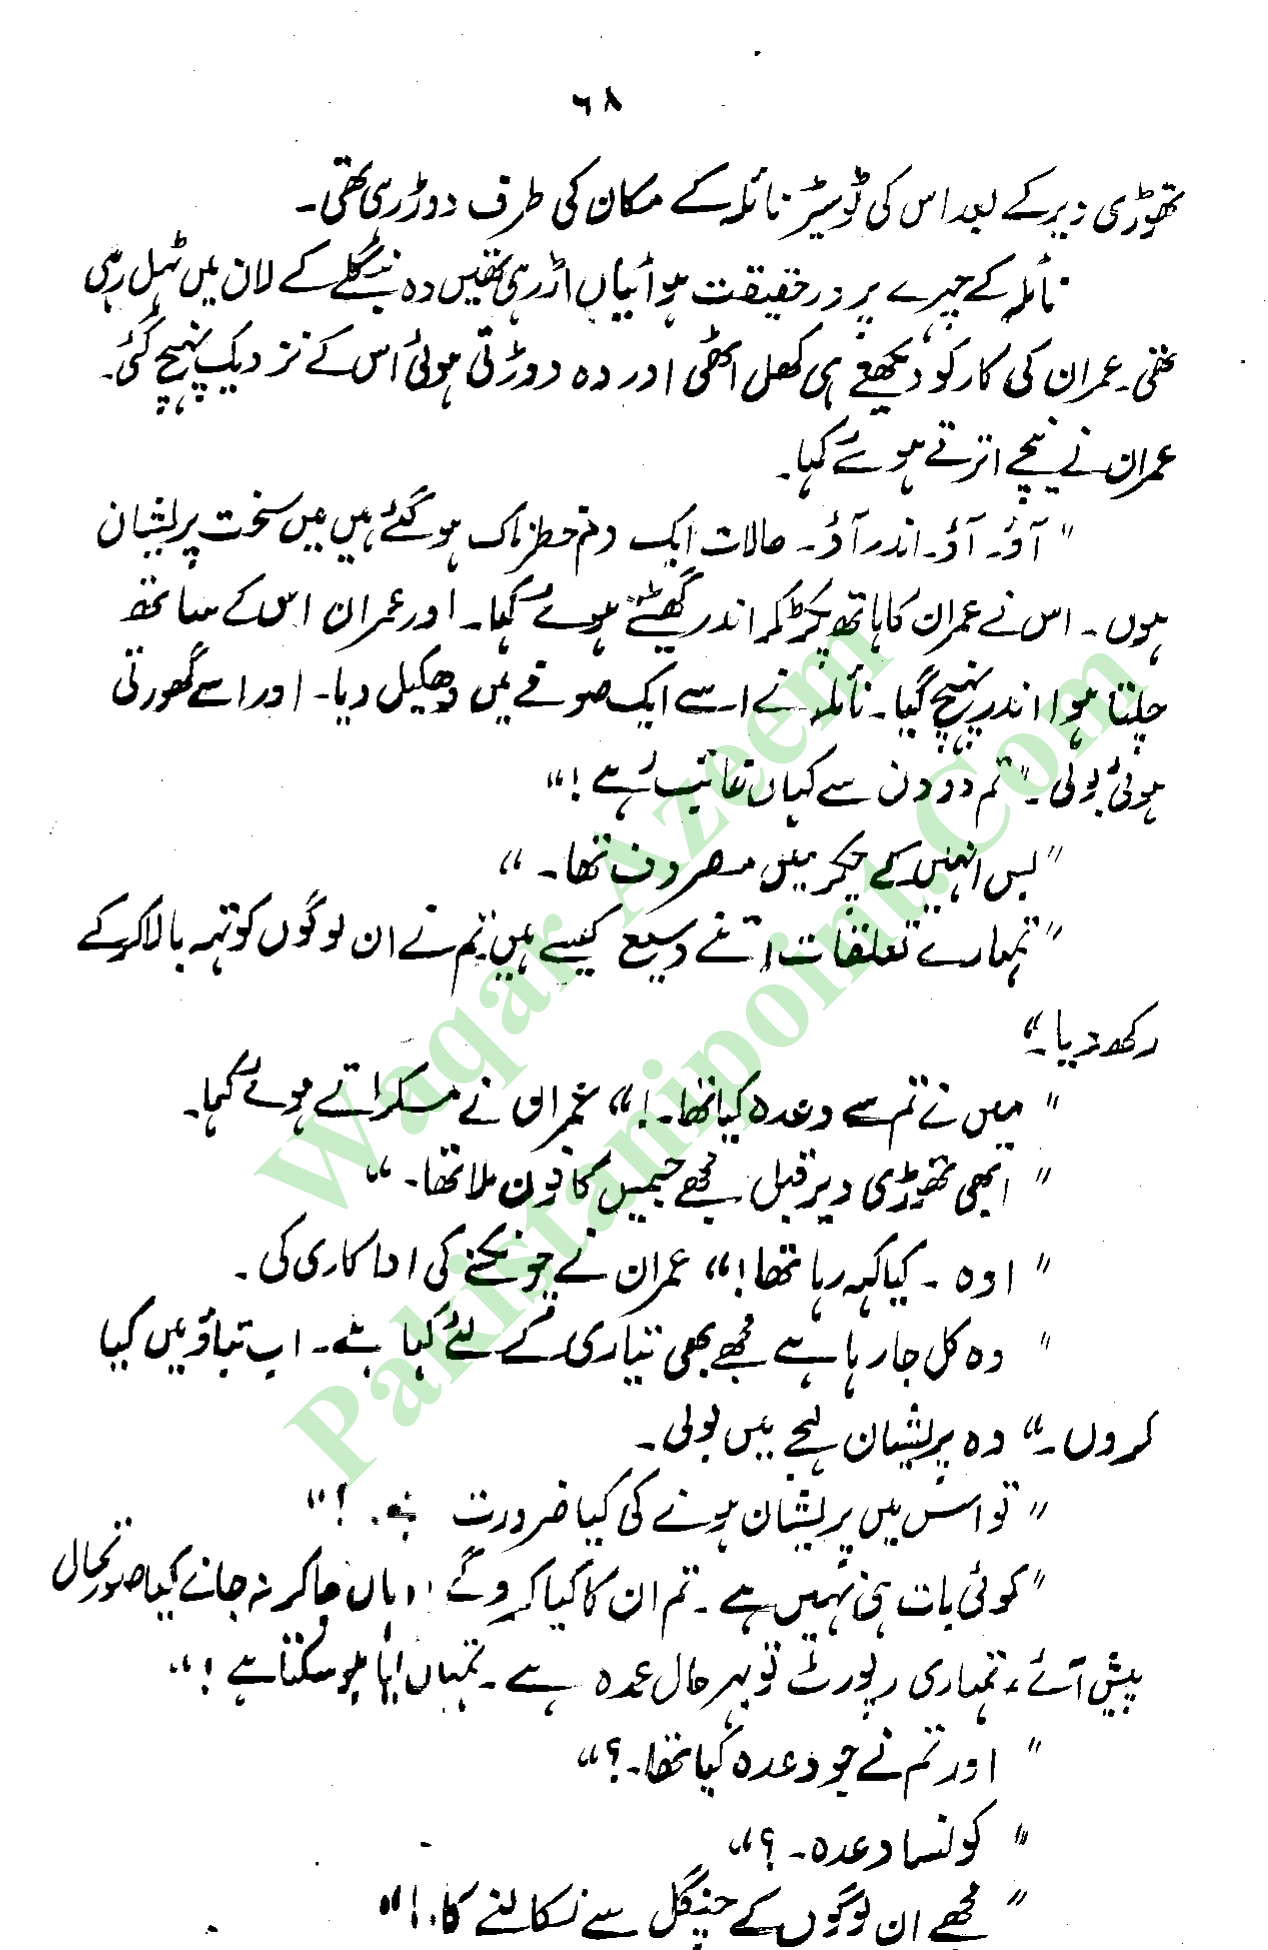 ۶۸
تھوڑی دیر کے بعد اس کی ٹوسیٹر نائلہ کے مکان کی طرف دوڑ رہی تھی۔
نائلہ کے چہرے پر درحقیقت ہوائیاں اڑ رہی تھیں وہ بنگلے کے لان میں ٹہل رہی
تھی۔ عمران کی کار کو دیکھتے ہی کھل اٹھی اور وہ دوڑتی ہوئی اس کے نزدیک پہنچ گئی۔
عمران نے نیچے اترتے ہوئے کہا۔
" آؤ۔ آؤ۔ اندر آؤ۔ حالات ایک دم خطرناک ہو گئے ہیں میں سخت پریشان
ہوں۔ اس نے عمران کا ہاتھ پکڑ کر اندر گھسیٹتے ہوئے کہا۔ اور عمران اس کے ساتھ
چلتا ہوا اندر پہنچ گیا۔ نائلہ نے اسے ایک صوفے میں دھکیل دیا۔ اور اسے گھورتی
ہوئی بولی۔ " تم دو دن سے کہاں غائب رہے !"
" بس انہیں کے چکر میں مصروف تھا۔ "
" تمہارے تعلقات اتنے وسیع کیسے ہیں۔ تم نے ان لوگوں کو تہہ بالا کر کے
رکھ دیا۔"
" میں نے تم سے وعدہ کیا تھا۔ !" عمران نے مسکراتے ہوئے کہا۔
" ابھی تھوڑی دیر قبل مجھے جیمس کا فون ملا تھا۔ "
" اوہ ۔ کیا کہہ رہا تھا !" عمران نے چونکنے کی اداکاری کی ۔
" وہ کل جا رہا ہے مجھے بھی تیاری کے لئے کہا ہے۔ اب بتاؤ میں کیا
کروں۔" وہ پریشان لہجے میں بولی۔
" تو اس میں پریشان ہونے کی کیا ضرورت ہے۔ !"
" کوئی بات ہی نہیں ہے ۔ تم ان کا کیا کرو گے وہاں جا کر نہ جانے کیا صورتحال
پیش آئے، تمہاری رپورٹ تو بہرحال عمدہ ہے ۔ ہو سکتا ہے !"
" اور تم نے جو وعدہ کیا تھا۔ ؟"
" کونسا وعدہ ۔ ؟"
" مجھے ان لوگوں کے چنگل سے نکالنے کا. !"
Waqar Azeem
Pakistanipoint.Com